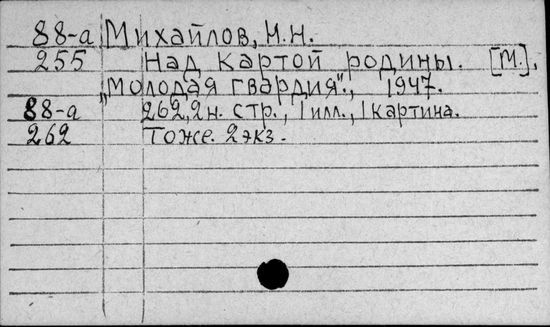 88-а Михайлов, Н.Н.
255 Над картой родины. [М.],
"Молодая гвардия"., 1947.
88-а 262,2н. стр., 1 илл., 1 картина.
262 Тоже. 2 экз.